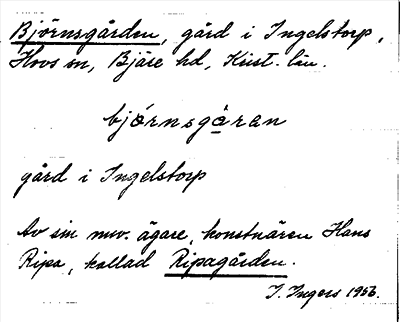 Björnsgården, gård i Ingelstorp,
Hovs sn, Bjäre hd, Krist. län.
bjórnsgǫ̀ran
gård i Ingelstorp
Av sin nuv. ägare, konstnären Hans
Ripa, kallad Ripagården.
I. Ingers 1956.